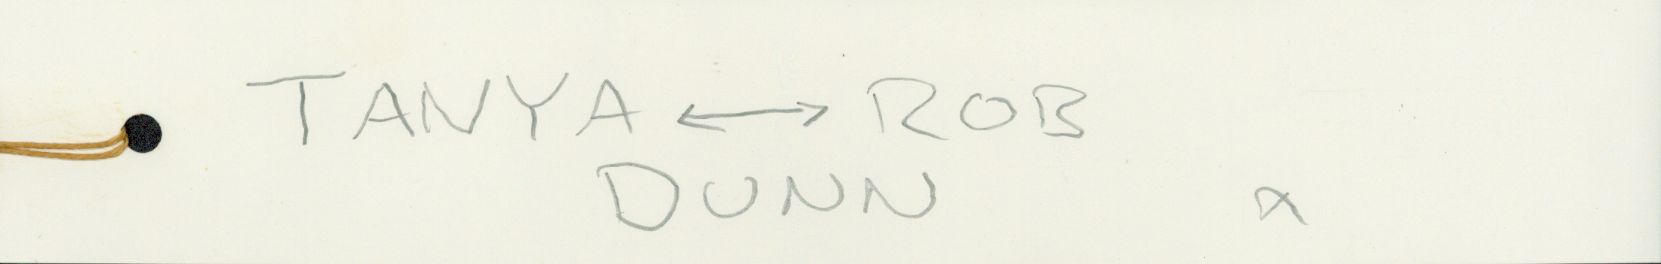 TANYA ↔ ROB
DUNN